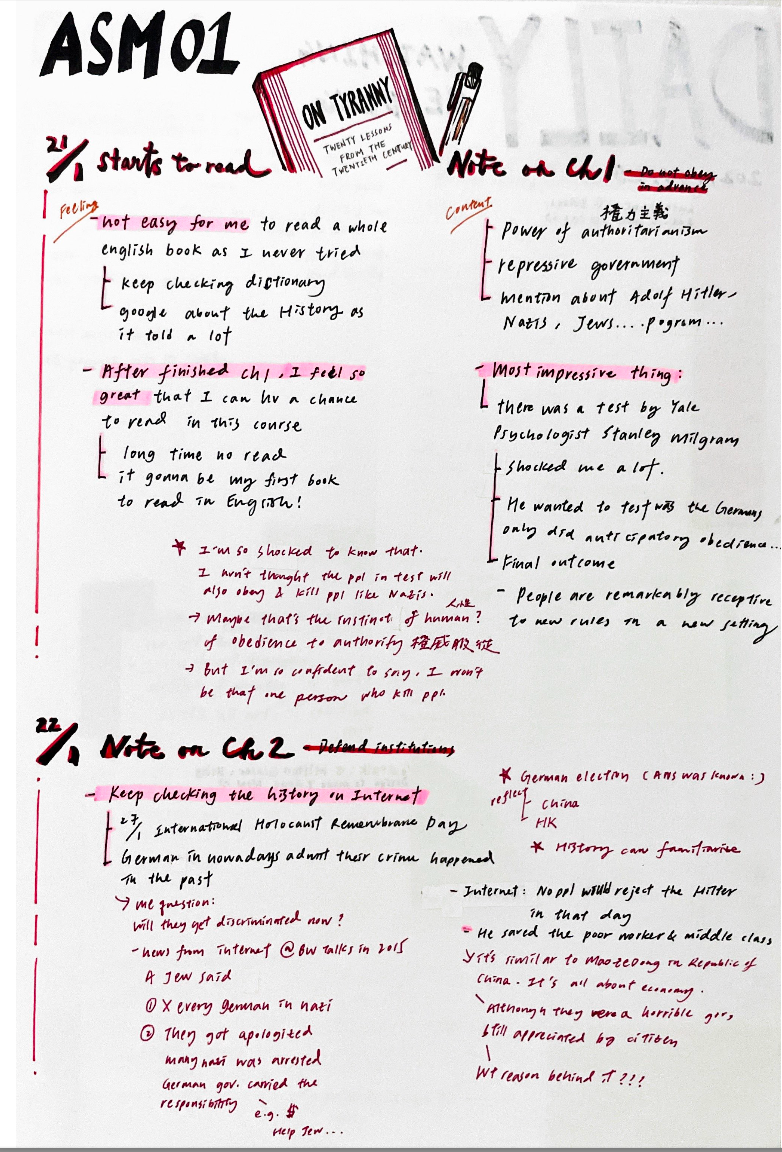 ASM01
ON TYRANNY
TWENTY LESSONS
FROM THE
TWENTIETH CENTURY
21/1 starts to read
Feeling
- not easy for me to read a whole
english book as I never tried
keep checking dictionary
google about the History as
it told a lot
- After finished ch1, I feel so
great that I can hv a chance
to read in this course
long time no read
it gonna be my first book
to read in English!
Note on Ch1 - Do not obey
in advance
Content
權力主義
Power of authoritarianism
repressive government
mention about Adolf Hitler,
Nazis, Jews.... pogrom...
- Most impressive thing:
there was a test by Yale
Psychologist Stanley Milgram
Shocked me a lot.
He wanted to test was the Germans
only did anticipatory obedience...
Final outcome
- People are remarkably receptive
to new rules in a new setting
★ I'm so shocked to know that.
I hvn't thought the ppl in test will
also obey & kill ppl like Nazis.
人性
→ Maybe that's the instinct of human?
of obedience to authority 權威服從
→ But I'm so confident to say, I won't
be that one person who kill ppl.
22/1 Note on Ch2 - Defend institutions
- Keep checking the history on Internet
27/1 International Holocaust Remembrance Day
German in nowadays admit their crime happened
in the past
→ me question:
Will they get discriminated now?
- news from internet @BW Talks in 2015
A Jew said
① X every german in nazi
② They got apologized
many nazi was arrested
German gov. carried the
responsibility
e.g. $
Help Jew...
★ German election (Ans was known:)
reflect
China
HK
★ History can familiarise
- Internet: No ppl would reject the Hitler
in that day
- He saved the poor worker & middle class
→ it's similar to Mao ZeDong in Republic of
China. It's all about economy.
Although they were a horrible gov,
still appreciated by citizen
Wt reason behind it???